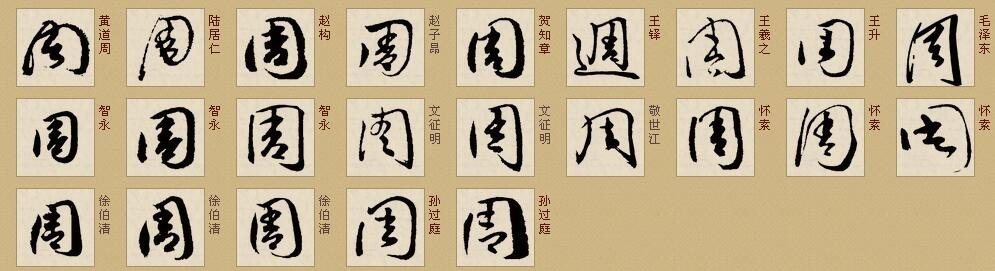 周 黄道周 周 陆居仁 周 赵构 周 赵子昂 周 贺知章 週 王铎 周 王羲之 周 王升 周 毛泽东
周 智永 周 智永 周 智永 周 文征明 周 文征明 周 敬世江 周 怀素 周 怀素 周 怀素
周 徐伯清 周 徐伯清 周 徐伯清 周 孙过庭 周 孙过庭